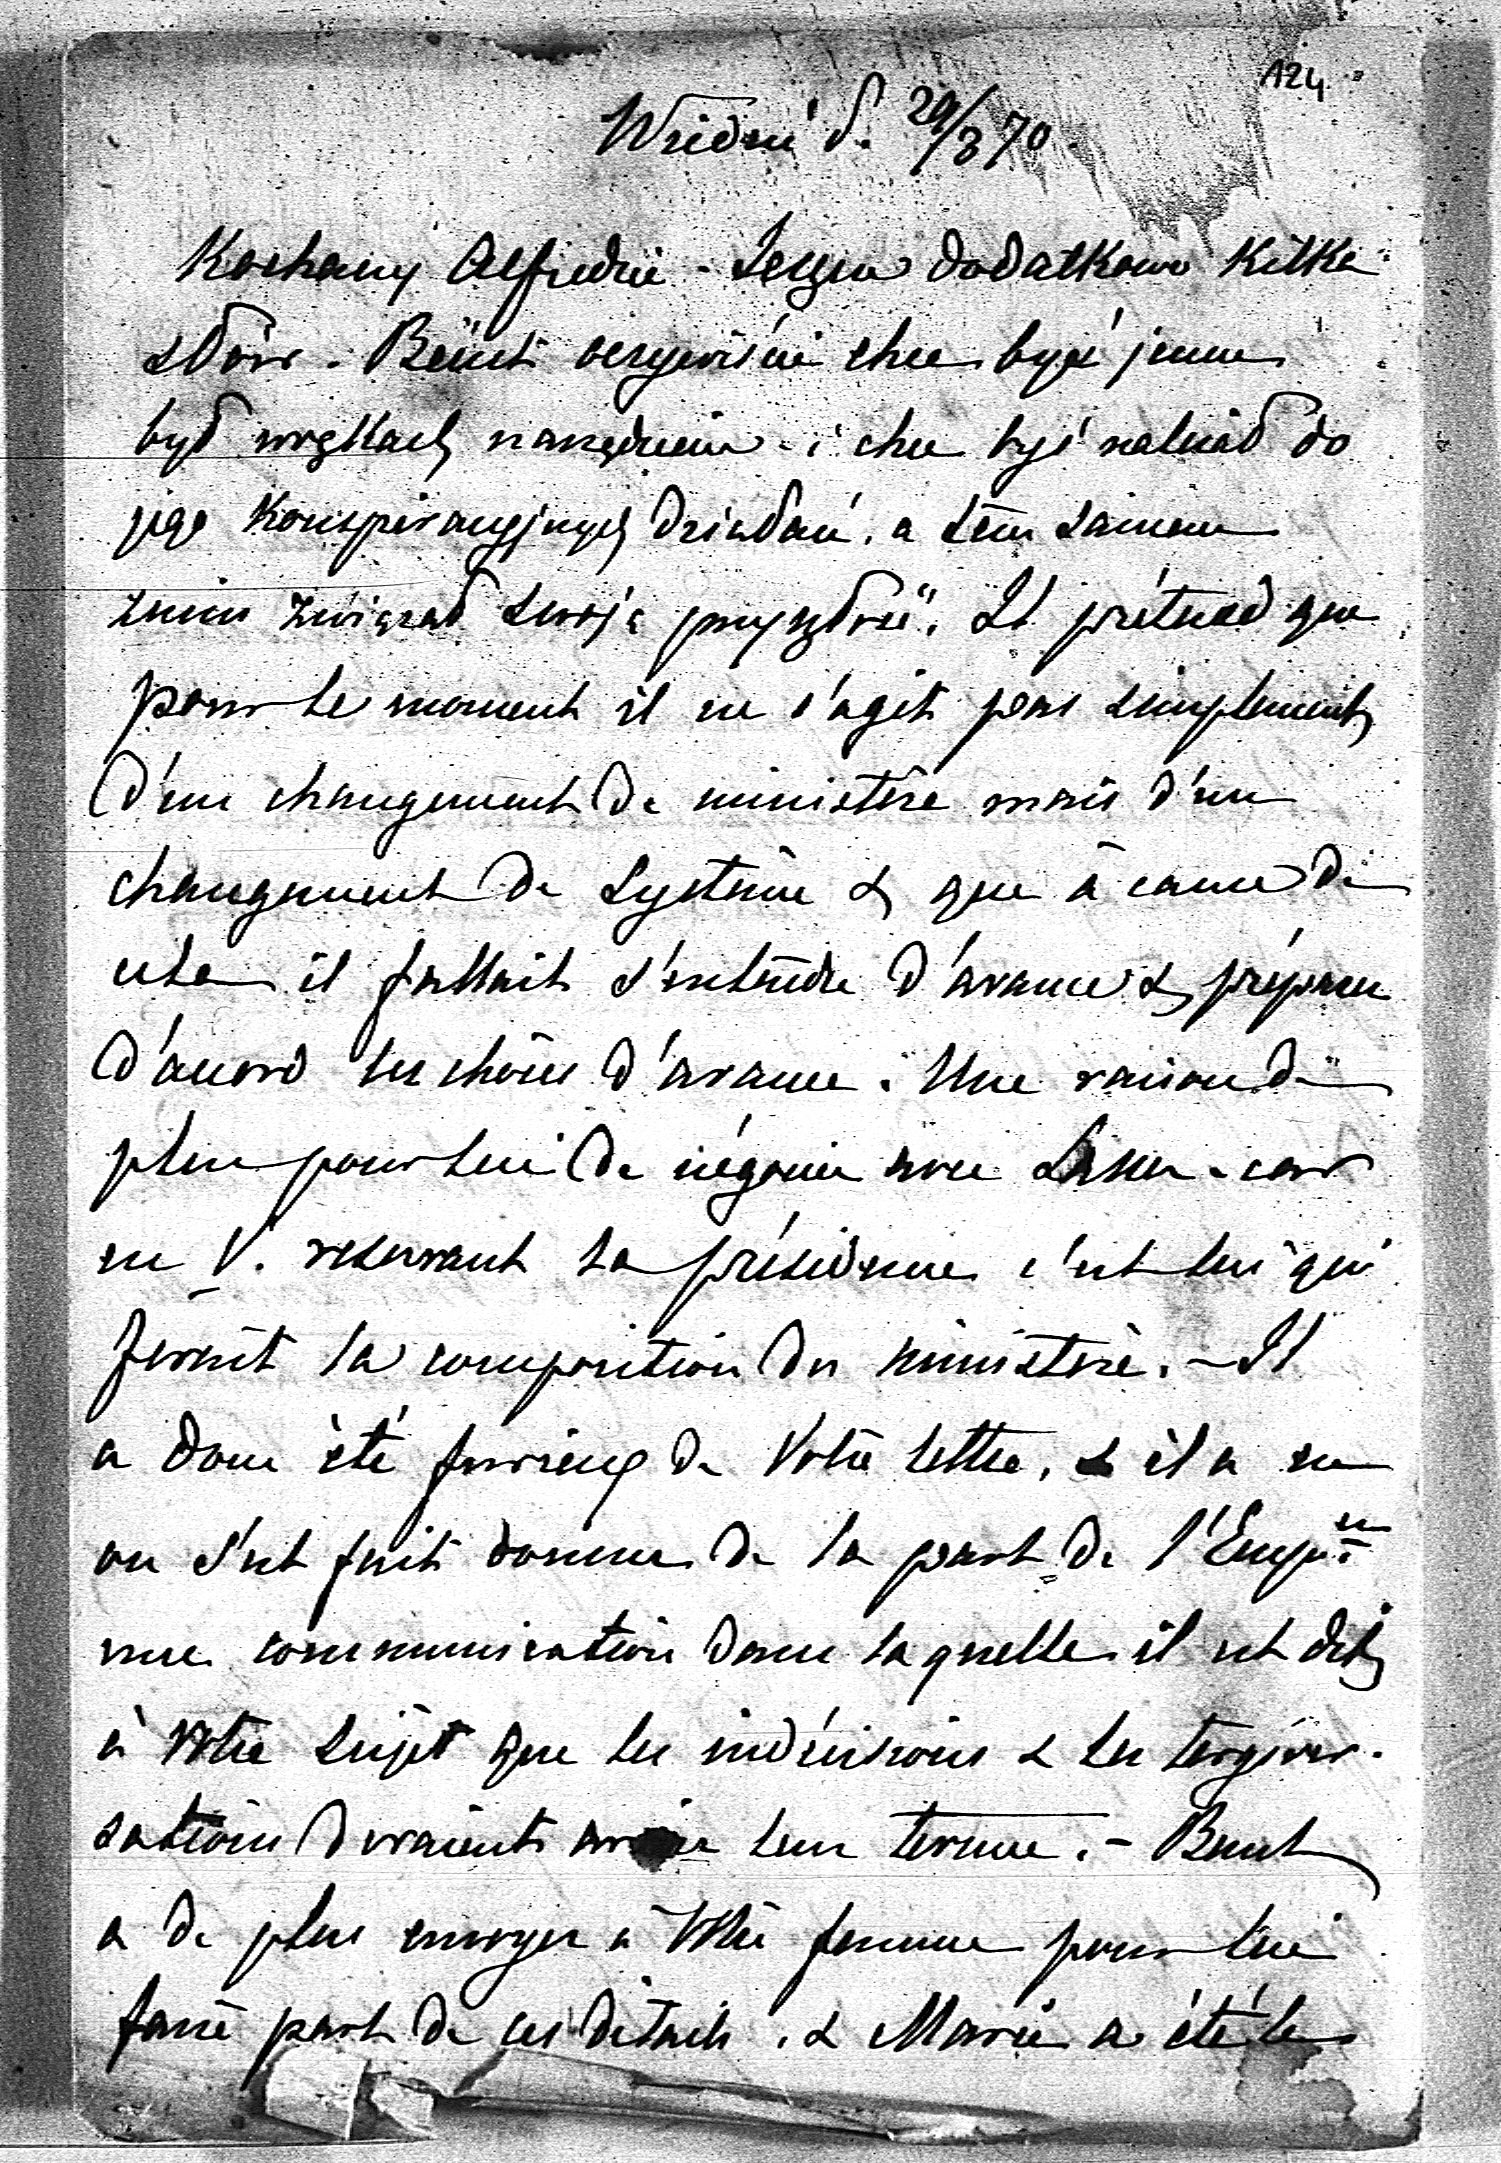 124
Wiedeń d. 29/3 70
Kochany Alfredzie - Jeszcze dodatkowo kilka
słów. Beust oczywiście chce byś jemu
był w rękach narzędziem - i chce byś należał do
jego konspiracyjnych działań, a tém samem
z nim związał swoją przyszłość. Il prétend que
pour le moment il ne s'agit pas simplement
d'un changement de ministère mais d'un
changement de système & que à cause de
cela il fallait s'entendre d'avance & préparer
d'accord les choses d'avance. Une raison de
plus pour lui de négocier avec Lasser - car
en V. reservant la présidence c'est lui qui
ferait la composition du ministère. - Il
a donc été furieux de Votre lettre, & il a eu
ou s'est fait donner de la part de l'Emp<sup>eur</sup>
une communication dans laquelle il est dit
à Votre sujet que les indécisions & les tergiver-
sations devraient avoir leur terme. - Beust
a de plus envoyer à Votre femme pour lui
faire part de ces détails, & Marie a été le